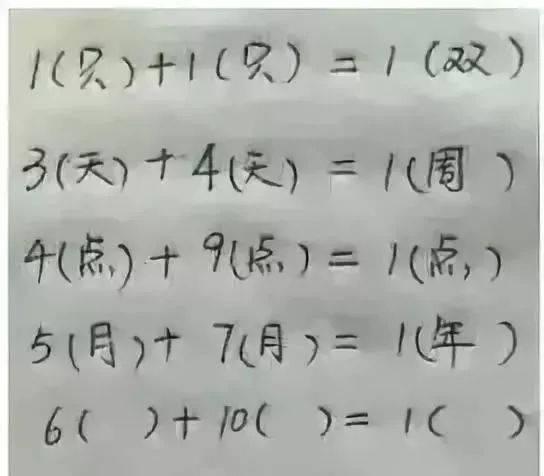 1(只)+1(只)=1(双)
3(天)+4(天)=1(周)
4(点)+9(点)=1(点)
5(月)+7(月)=1(年)
6( )+10( )=1( )